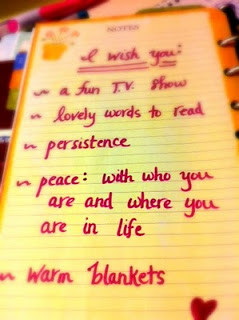 NOTES
I wish you:
~ a fun T.V. show
~ lovely words to read
~ persistence
~ peace: with who you
are and where you
are in life
~ warm blankets